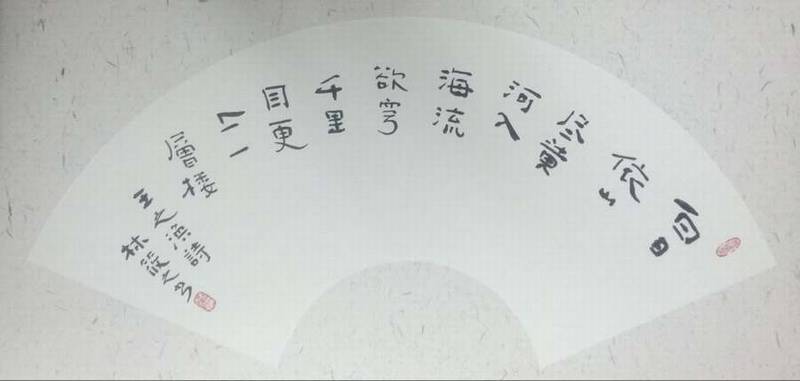 白日
依山
尽黄
河入
海流
欲穷
千里
目更
上一
層楼
王之涣詩
林筱之书